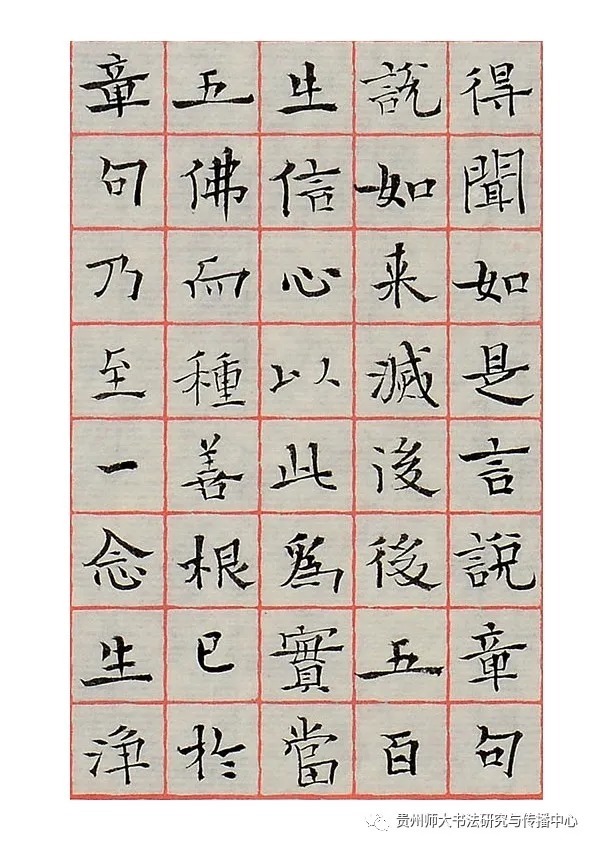 得聞如是言說章句
説如来滅後後五百
生信心以此為實當
五佛而種善根已於
章句乃至一念生淨
贵州师大书法研究与传播中心